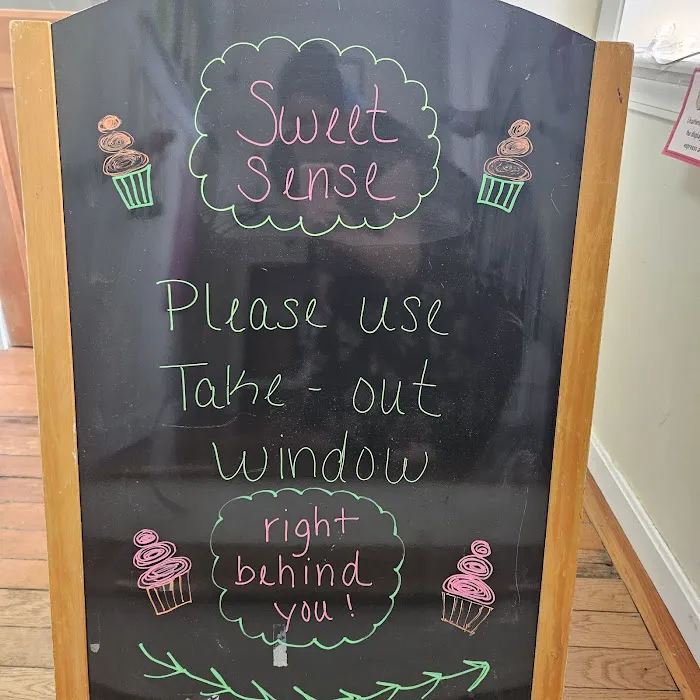 Sweet
Sense
Please use
Take-out
window
right
behind
you!